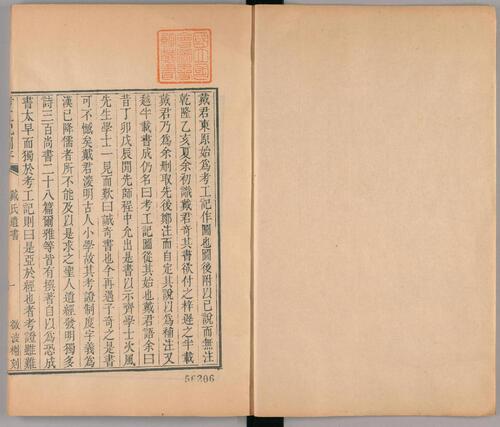 戴君東原始爲考工記作圖也圖後附以己說而無注
乾隆乙亥夏余初識戴君奇其書欲付之梓遲之半載
戴君乃爲余刪取先後鄭注而自定其說以爲補注又
越半載書成仍名曰考工記圖從其始也戴君語余曰
昔丁卯戊辰閒先師程中允出是書以示齊學士次風
先生學士一見而歎曰誠奇書也今再遇子奇之是書
可不憾矣戴君深明古人小學故其考證制度字義爲
漢已降儒者所不能及以是求之聖人遺經發明獨多
詩三百尚書二十八篇爾雅等皆有撰著自以爲恐成
書太早而獨於考工記則曰是亞於經也者考證雖難
戴氏遺書
一
微波榭刻
56206